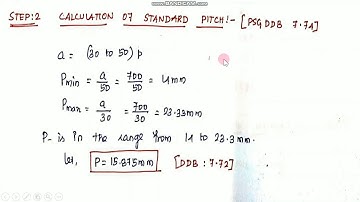 STEP:2 CALCULATION OF STANDARD PITCH:- [PSG DDB 7.74]
a = (30 to 50) p
Pmin = a/50 = 700/50 = 14mm
Pmax = a/30 = 700/30 = 23.33mm
P- is in the range from 14 to 23.3 mm.
let, P = 15.875mm [DDB : 7.72]